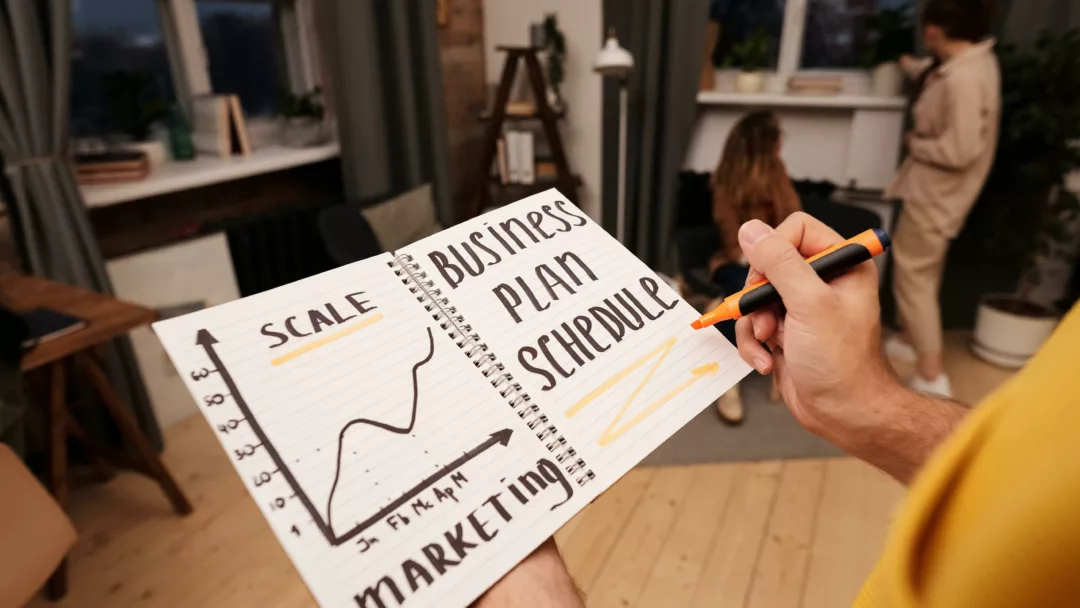 SCALE
60
50
40
30
10
1
Jn Fb Mc Ap M
MARKETING
BUSINESS
PLAN
SCHEDULE